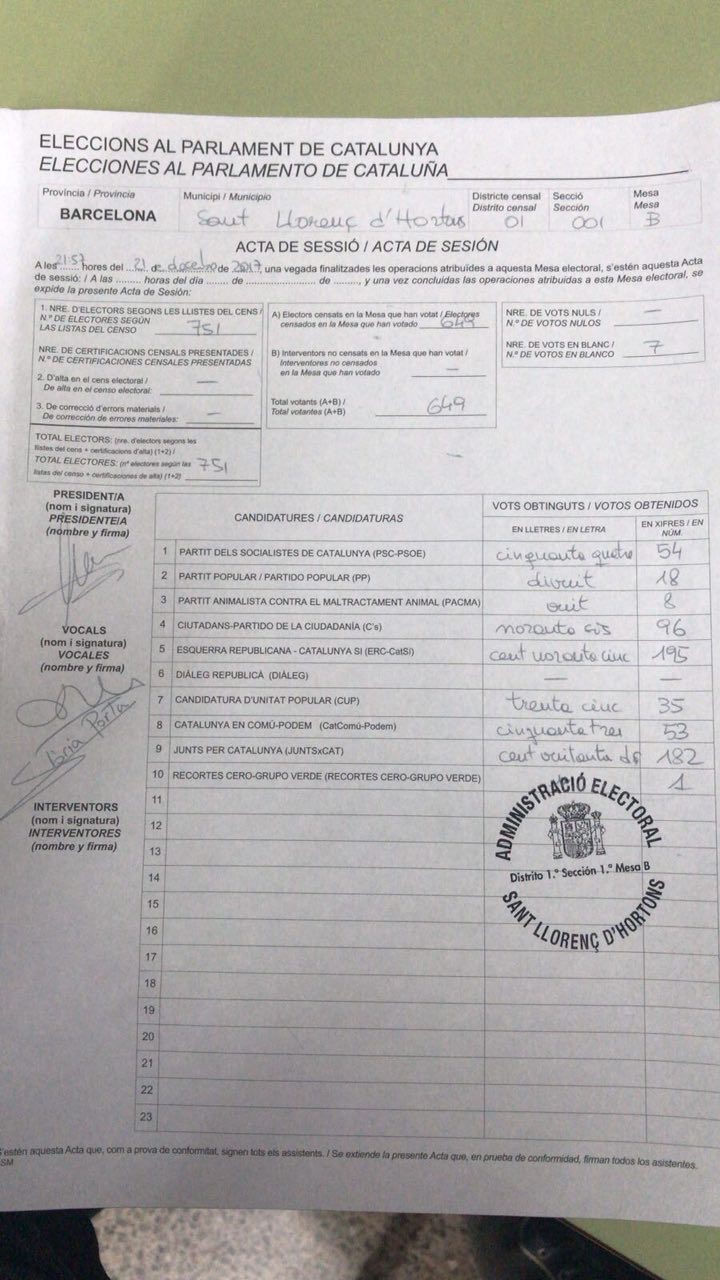 ELECCIONS AL PARLAMENT DE CATALUNYA
ELECCIONES AL PARLAMENTO DE CATALUÑA
Província / Provincia
BARCELONA
Municipi / Municipio
Sant Llorenç d'Hortons
Districte censal
Distrito censal
01
Secció
Sección
001
Mesa
Mesa
B
ACTA DE SESSIÓ / ACTA DE SESIÓN
A les 21:57 hores del 21 de desembre de 2017, una vegada finalitzades les operacions atribuïdes a aquesta Mesa electoral, s'estén aquesta Acta
de sessió: / A las ........ horas del día ........ de ........................ de ........, y una vez concluidas las operaciones atribuidas a esta Mesa electoral, se
expide la presente Acta de Sesión:
1. NRE. D'ELECTORS SEGONS LES LLISTES DEL CENS /
N.º DE ELECTORES SEGÚN
LAS LISTAS DEL CENSO 751
NRE. DE CERTIFICACIONS CENSALS PRESENTADES /
N.º DE CERTIFICACIONES CENSALES PRESENTADAS
2. D'alta en el cens electoral /
De alta en el censo electoral: —
3. De correcció d'errors materials /
De corrección de errores materiales: —
TOTAL ELECTORS: (nre. d'electors segons les
llistes del cens + certificacions d'alta) (1+2) /
TOTAL ELECTORES: (nº electores según las
listas del censo + certificaciones de alta) (1+2) 751
A) Electors censats en la Mesa que han votat / Electores
censados en la Mesa que han votado 649
B) Interventors no censats en la Mesa que han votat /
Interventores no censados
en la Mesa que han votado —
Total votants (A+B) /
Total votantes (A+B) 649
NRE. DE VOTS NULS /
N.º DE VOTOS NULOS —
NRE. DE VOTS EN BLANC /
N.º DE VOTOS EN BLANCO 7
PRESIDENT/A
(nom i signatura)
PRESIDENTE/A
(nombre y firma)
VOCALS
(nom i signatura)
VOCALES
(nombre y firma)
Porta
INTERVENTORS
(nom i signatura)
INTERVENTORES
(nombre y firma)
CANDIDATURES / CANDIDATURAS
VOTS OBTINGUTS / VOTOS OBTENIDOS
EN LLETRES / EN LETRA
EN XIFRES / EN NÚM.
1 PARTIT DELS SOCIALISTES DE CATALUNYA (PSC-PSOE) cinquanta quatre 54
2 PARTIT POPULAR / PARTIDO POPULAR (PP) divuit 18
3 PARTIT ANIMALISTA CONTRA EL MALTRACTAMENT ANIMAL (PACMA) vuit 8
4 CIUTADANS-PARTIDO DE LA CIUDADANÍA (C's) noranta sis 96
5 ESQUERRA REPUBLICANA - CATALUNYA SI (ERC-CatSí) cent noranta cinc 195
6 DIÀLEG REPUBLICÀ (DIÀLEG) — —
7 CANDIDATURA D'UNITAT POPULAR (CUP) trenta cinc 35
8 CATALUNYA EN COMÚ-PODEM (CatComú-Podem) cinquanta tres 53
9 JUNTS PER CATALUNYA (JUNTSxCAT) cent vuitanta dos 182
10 RECORTES CERO-GRUPO VERDE (RECORTES CERO-GRUPO VERDE) 1
11
12
13
14
15
16
17
18
19
20
21
22
23
ADMINISTRACIÓ ELECTORAL
Distrito 1.º Sección 1.ª Mesa B
SANT LLORENÇ D'HORTONS
S'estén aquesta Acta que, com a prova de conformitat, signen tots els assistents. / Se extiende la presente Acta que, en prueba de conformidad, firman todos los asistentes.